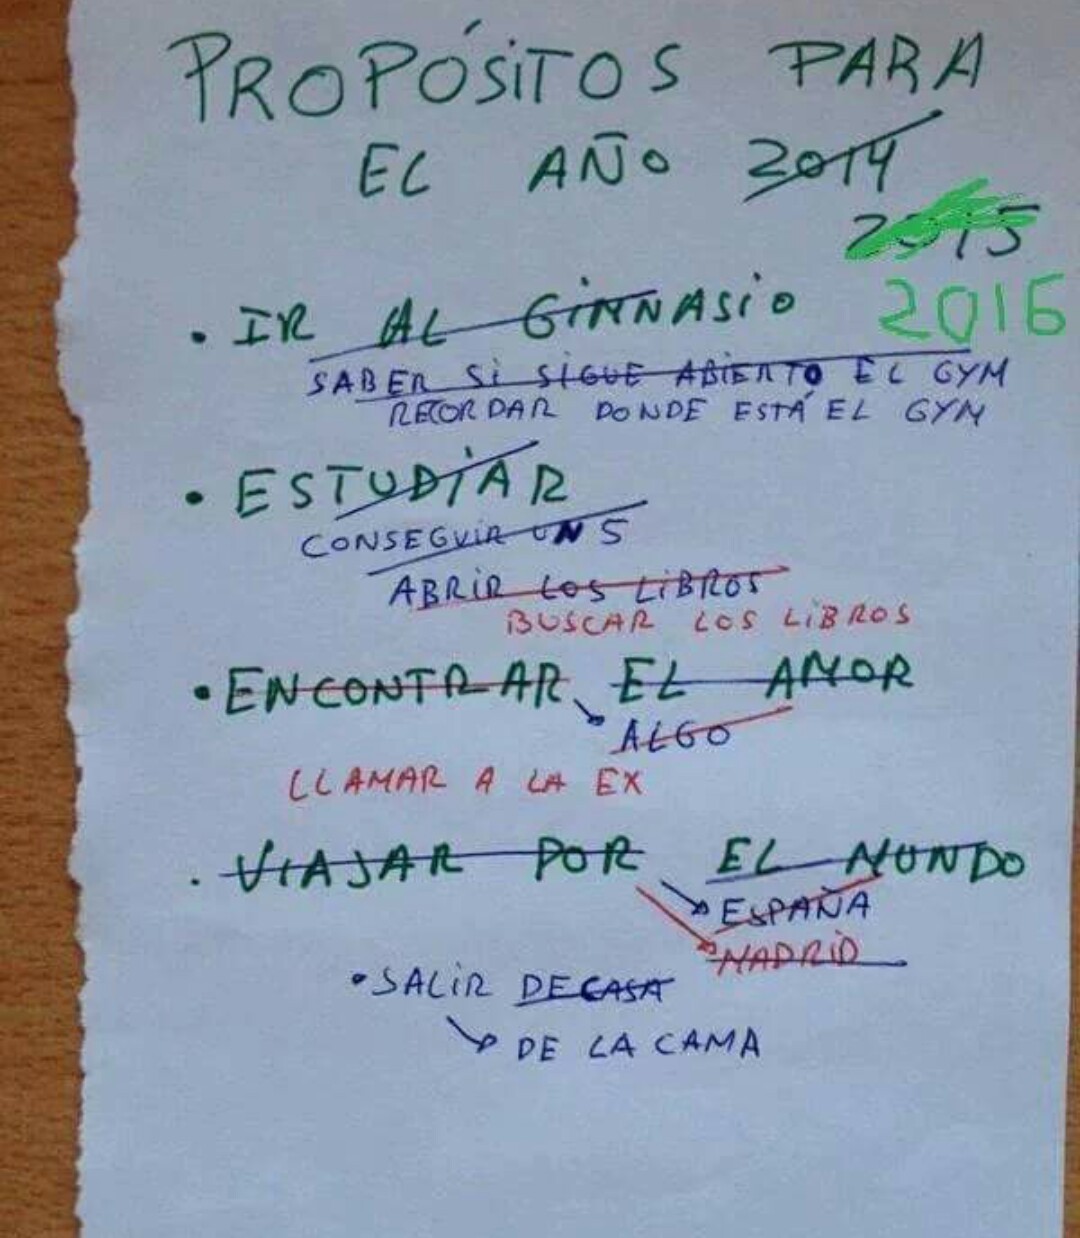 PROPÓSITOS PARA
EL AÑO 2014
2015
2016
• IR AL GiMNASiO
SABER Si SIGUE ABiERTO EL GYM
RECORDAR DONDE ESTÁ EL GYM
• ESTUDiAR
CONSEGUiR UN 5
ABRiR LOS LiBROS
BUSCAR LOS LiBROS
• ENCONTRAR EL AMOR
ALGO
LLAMAR A LA EX
. VIAJAR POR EL MUNDO
ESPAÑA
MADRiD
• SALiR DE CASA
DE LA CAMA